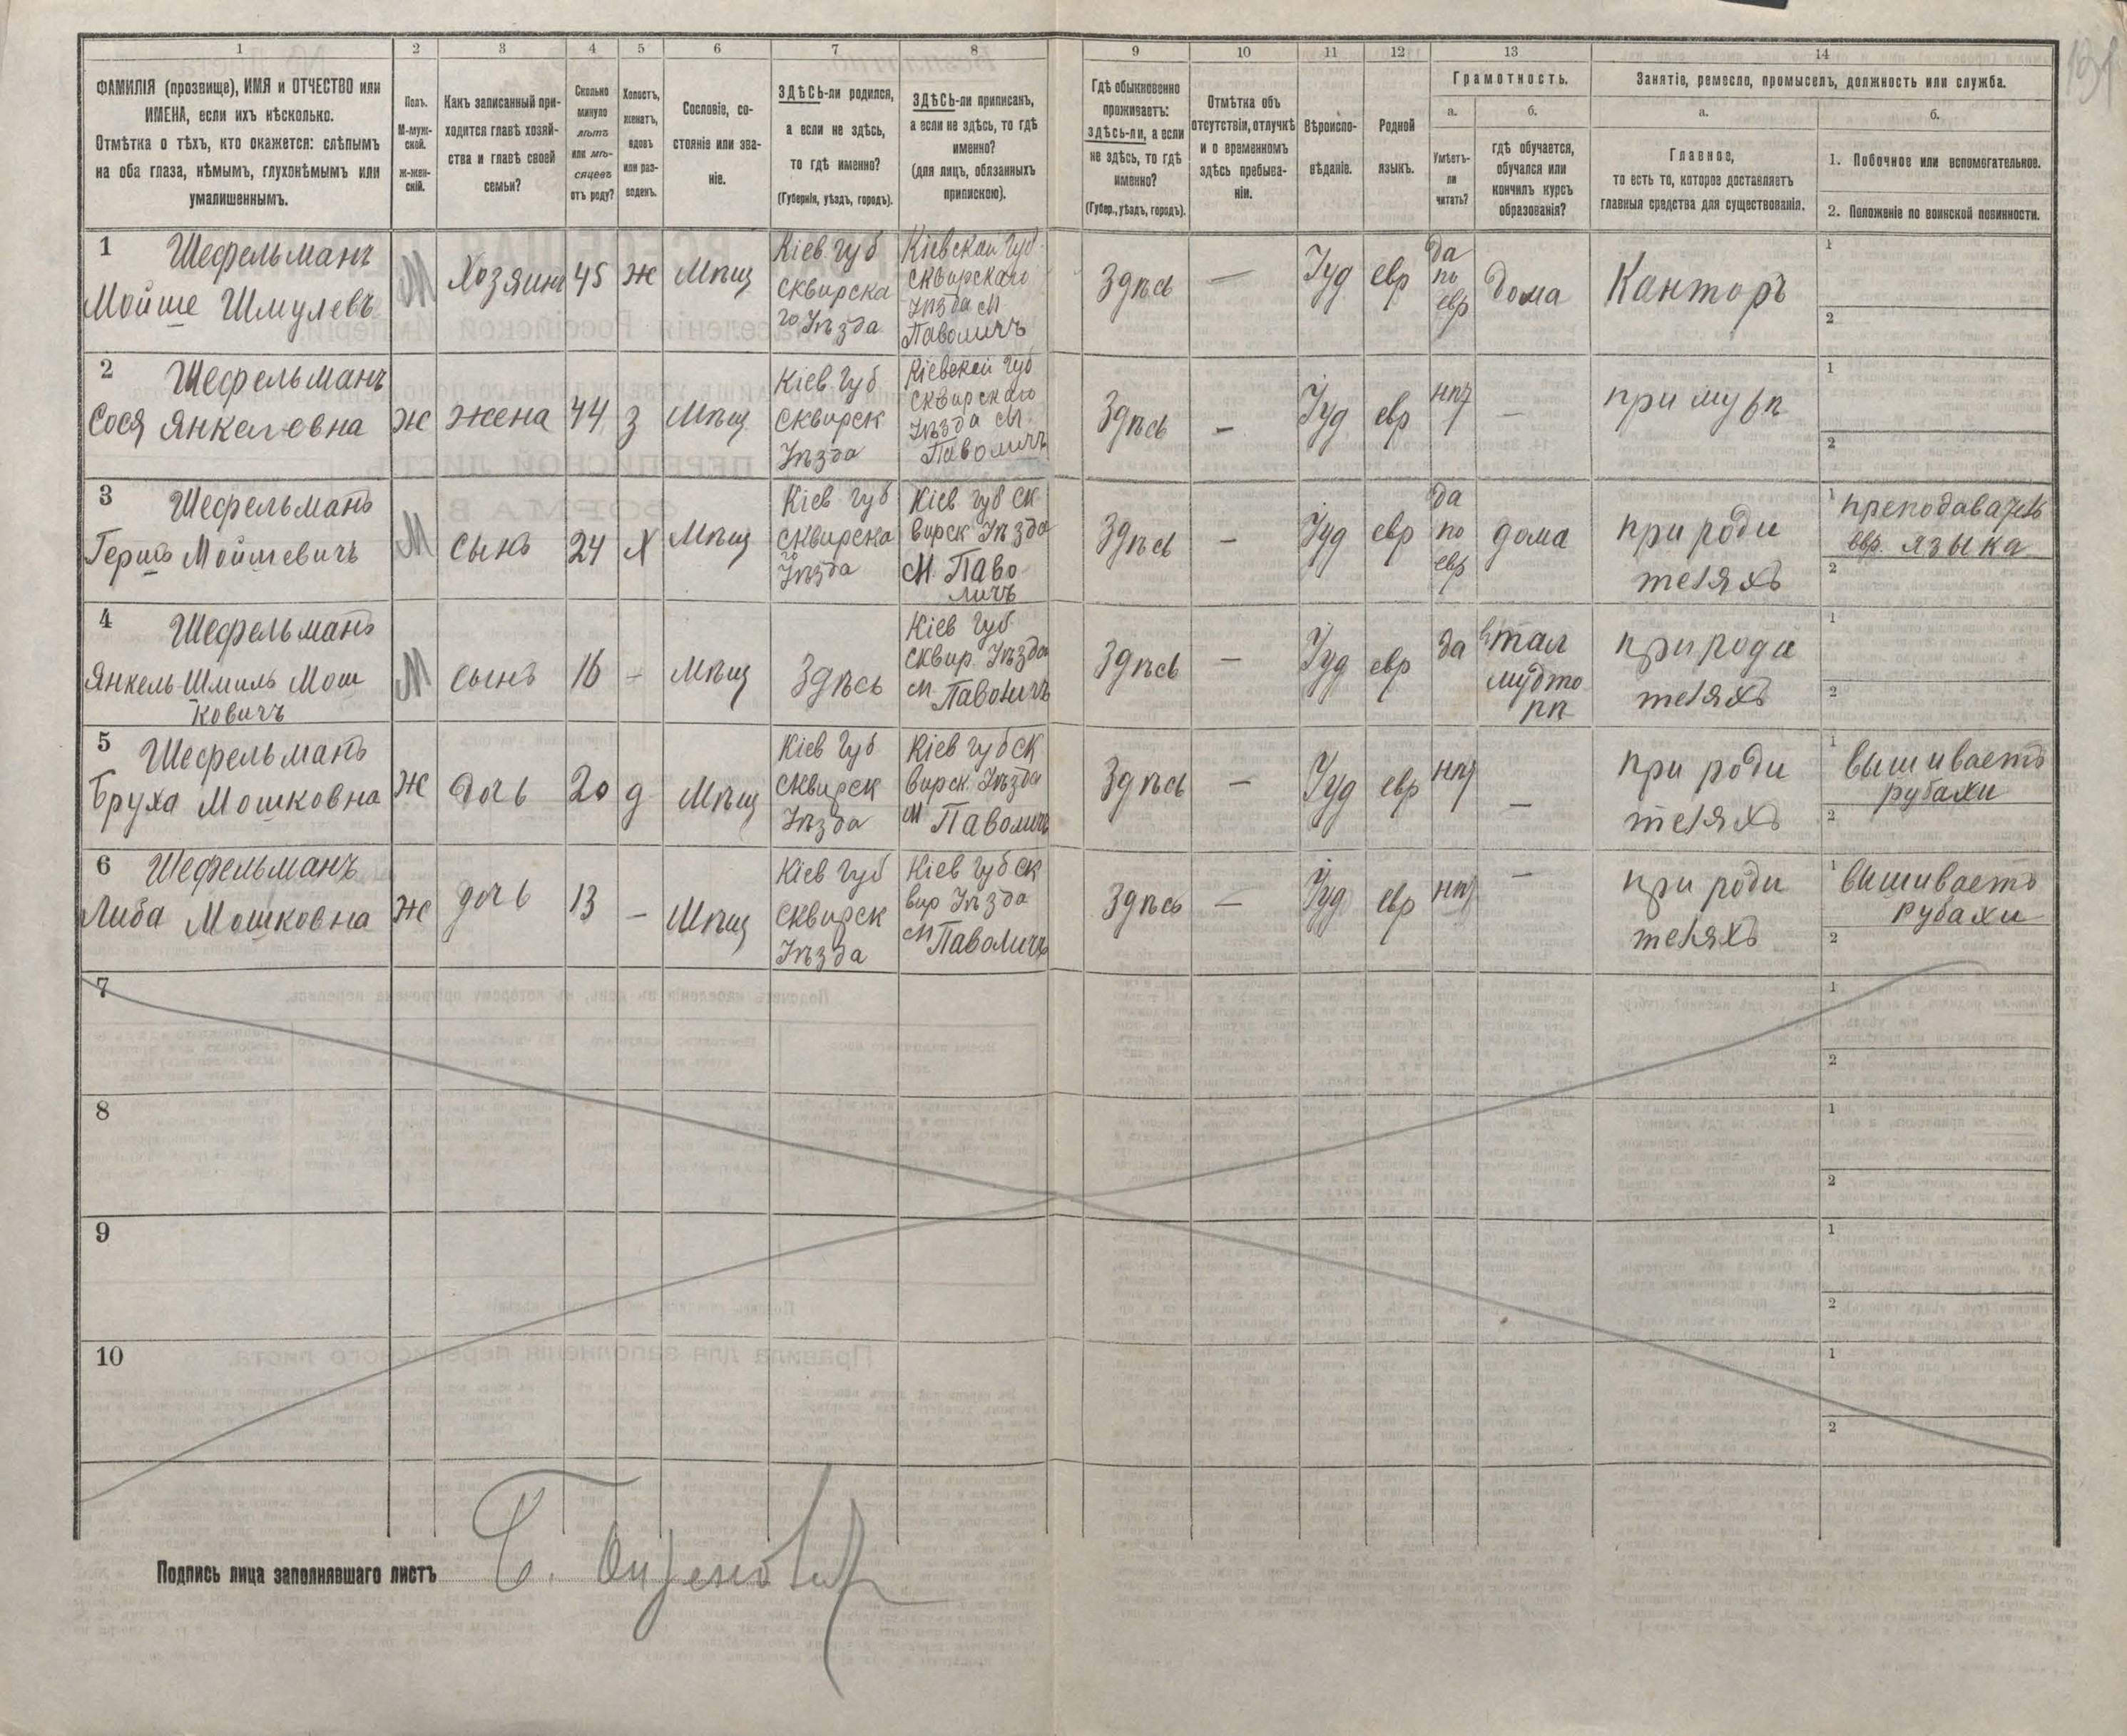 1 2 3 4 5 6 7 8 9 10 11 12 13 14
ФАМИЛІЯ (прозвище), ИМЯ и ОТЧЕСТВО или
ИМЕНА, если ихъ нѣсколько.
Отмѣтка о тѣхъ, кто окажется: слѣпымъ
на оба глаза, нѣмымъ, глухонѣмымъ или
умалишеннымъ.
Полъ.
М-муж-
ской.
Ж-жен-
скій.
Какъ записанный при-
ходится главѣ хозяй-
ства и главѣ своей
семьи?
Сколько
минуло
лѣтъ
или мѣ-
сяцевъ
отъ роду?
Холостъ,
женатъ,
вдовъ
или раз-
веденъ.
Сословіе, со-
стояніе или зва-
ніе.
ЗДѢСЬ-ли родился,
а если не здѣсь,
то гдѣ именно?
(Губернія, уѣздъ, городъ).
ЗДѢСЬ-ли приписанъ,
а если не здѣсь, то гдѣ
именно?
(для лицъ, обязанныхъ
припискою).
Гдѣ обыкновенно
проживаетъ:
ЗДѢСЬ-ли, а если
не здѣсь, то гдѣ
именно?
(Губер., уѣздъ, городъ).
Отмѣтка объ
отсутствіи, отлучкѣ
и о временномъ
здѣсь пребыва-
ніи.
Вѣроиспо-
вѣданіе.
Родной
языкъ.
Грамотность.
а.
Умѣетъ-
ли
читать?
б.
гдѣ обучается,
обучался или
кончилъ курсъ
образованія?
Занятіе, ремесло, промыселъ, должность или служба.
а.
Главное,
то есть то, которое доставляетъ
главныя средства для существованія.
б.
1. Побочное или вспомогательное.
2. Положеніе по воинской повинности.
1 Шефельманъ
Мойше Шмулевъ
М
Хозяинъ
45
ж
Мѣщ
Кіев. Губ
сквирска
го Уѣзда
Кіевской Губ.
сквирскаго
Уѣзда м
Паволичъ
Здѣсь
—
Іуд
евр
да
по
евр
дома
Канторъ
1
2
2 Шефельманъ
Сося Янкелевна
ж
жена
44
з
Мѣщ
Кіев. Губ
сквирск
Уѣзда
Кіевской Губ
сквирскаго
Уѣзда м.
Паволичъ
Здѣсь
—
Іуд
евр
нѣт
—
при мужѣ
1
2
3 Шефельманъ
Гершъ Мойшевичъ
М
сынъ
24
х
Мѣщ
Кіев Губ
сквирска
го
Уѣзда
Кіев губ ск
вирск Уѣзда
м. Паво
личъ
Здѣсь
—
Іуд
евр
да
по
евр
дома
при роди
теляхъ
1 преподаватель
евр. языка
2
4 Шефельманъ
Янкель-Шмиль Мош
ковичъ
М
сынъ
16
—
Мѣщ
Здѣсь
Кіев Губ
сквир. Уѣзда
м. Паволичъ
Здѣсь
—
Іуд
евр
да
в тал
мудто
рѣ
при роди
теляхъ
1
2
5 Шефельманъ
Бруха Мошковна
ж
дочь
20
д
Мѣщ
Кіев Губ
сквирск
Уѣзда
Кіев губ ск
вирск. Уѣзда
м Паволичъ
Здѣсь
—
Іуд
евр
нѣт
—
при роди
теляхъ
1 вышиваетъ
рубахи
2
6 Шефельманъ
Либа Мошковна
ж
дочь
13
—
Мѣщ
Кіев Губ
сквирск
Уѣзда
Кіев губ ск
вир Уѣзда
м Паволичъ
Здѣсь
—
Іуд
евр
нѣт
—
при роди
теляхъ
1 вышиваетъ
рубахи
2
7
1
2
8
1
2
9
1
2
10
1
2
Подпись лица заполнявшаго листъ